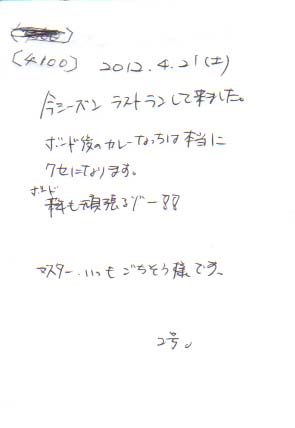 〔4100〕 2012.4.21(土)
今シーズン ラストランして来ました。
ボンド後のカレーなっちは本当に
クセになります。
ボンド
も頑張るゾー!!
マスター、いつも ごちそう様です。
2号。